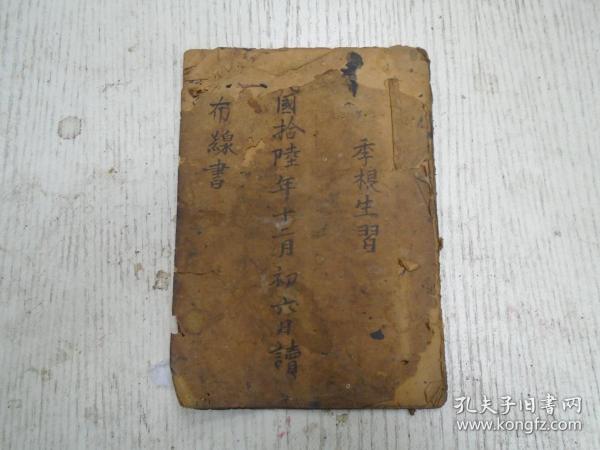 季根生習
國拾陸年十二月初六日讀
布線書
孔夫子旧书网
www.kongfz.com